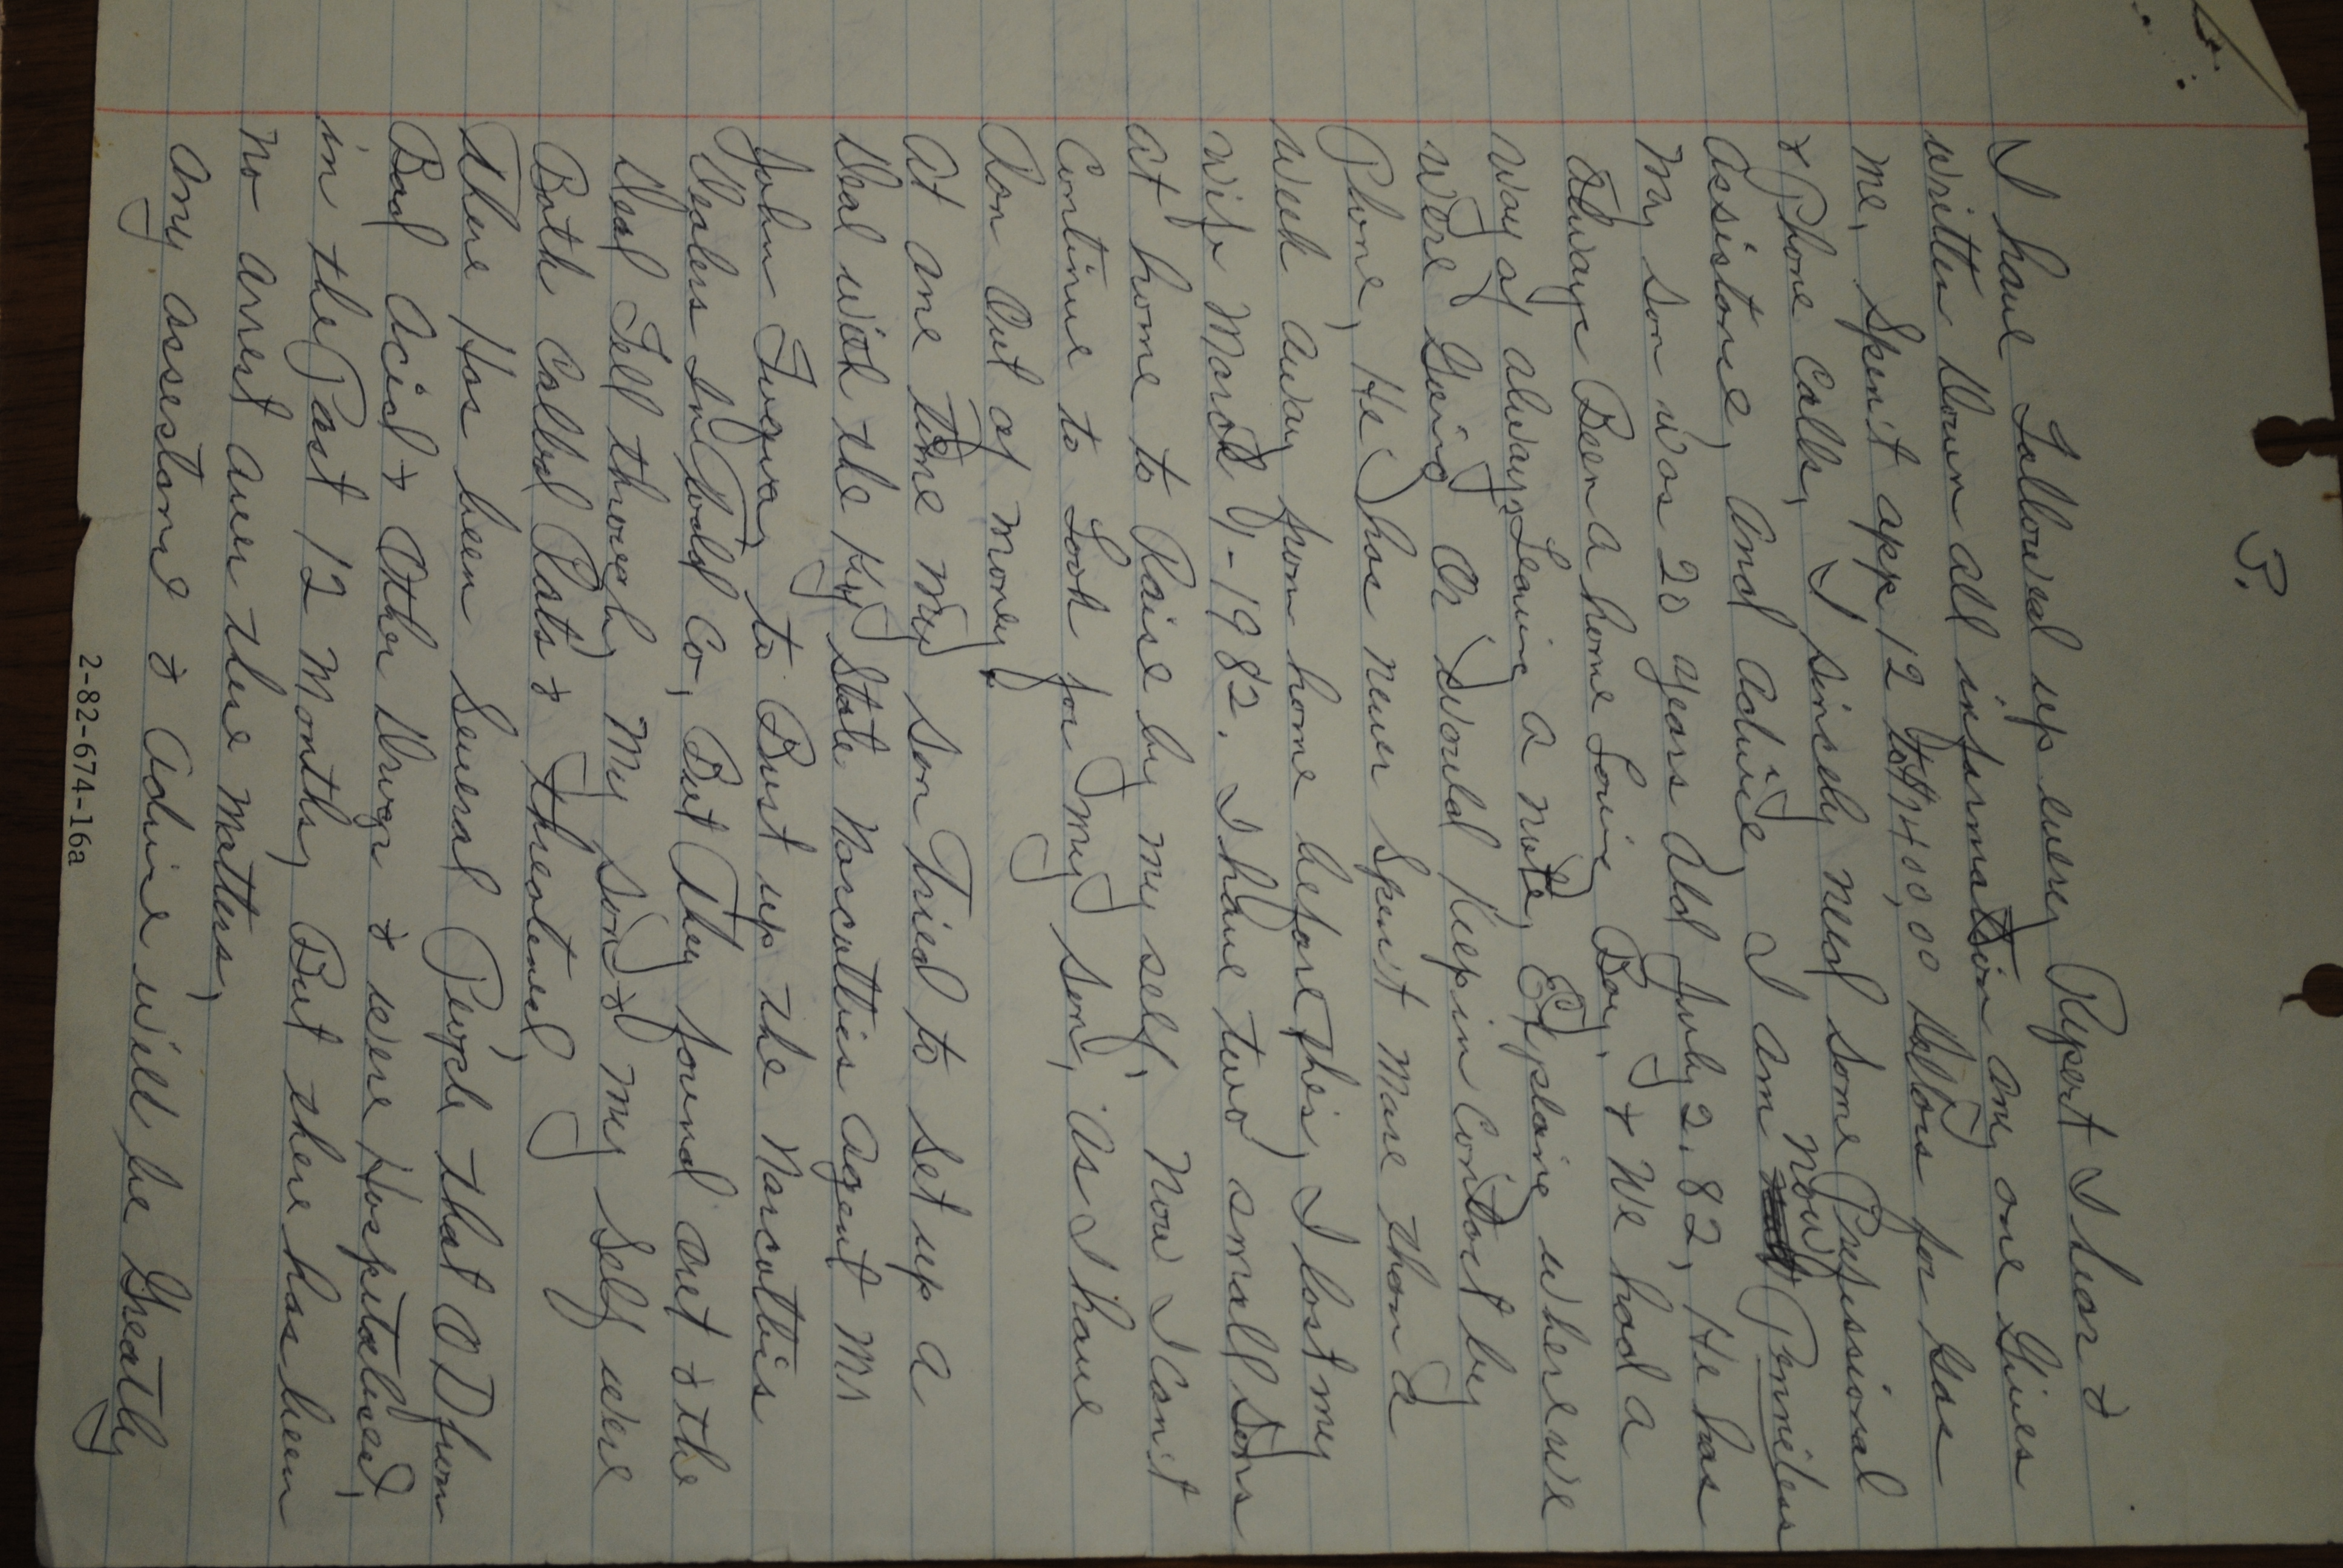 3.
I have Followed up every Report I hear &
written Down all information any one Gives
me, Spent app 12 to 14,000 Dollors for Gas
& Phone Calls, I sincely need some Professional
assistance, And Advice, I am now Penniless
My son was 20 years old July 2, 82, He has
always Been a home Loving Boy, & We had a
way of always Leaving a note, Explaing where we
were Going Or Would Keep in Contact by
Phone, He has never spent more than a
week away from home before this, I lost my
wife March 4-1982. I have two small Sons
at home to Raise by my self, Now I Can't
Continue to Look for my son, as I have
Ran Out of money.
At one time my son Tried to set up a
Deal with the Ky State Narcottics agent Mr
John to Bust up the Narcottis
Dealers In Todd Co, But They found out & the
Deal Fell through, My son & my self were
Both Called Rats & threatened,
There Has been Several People that OD from
Bad Acid & Other Drugs & were Hospitalised,
in the Past 12 Months, But there has been
no arrest over these matters,
Any assestance & Advice will be Greatly
2-82-674-16a